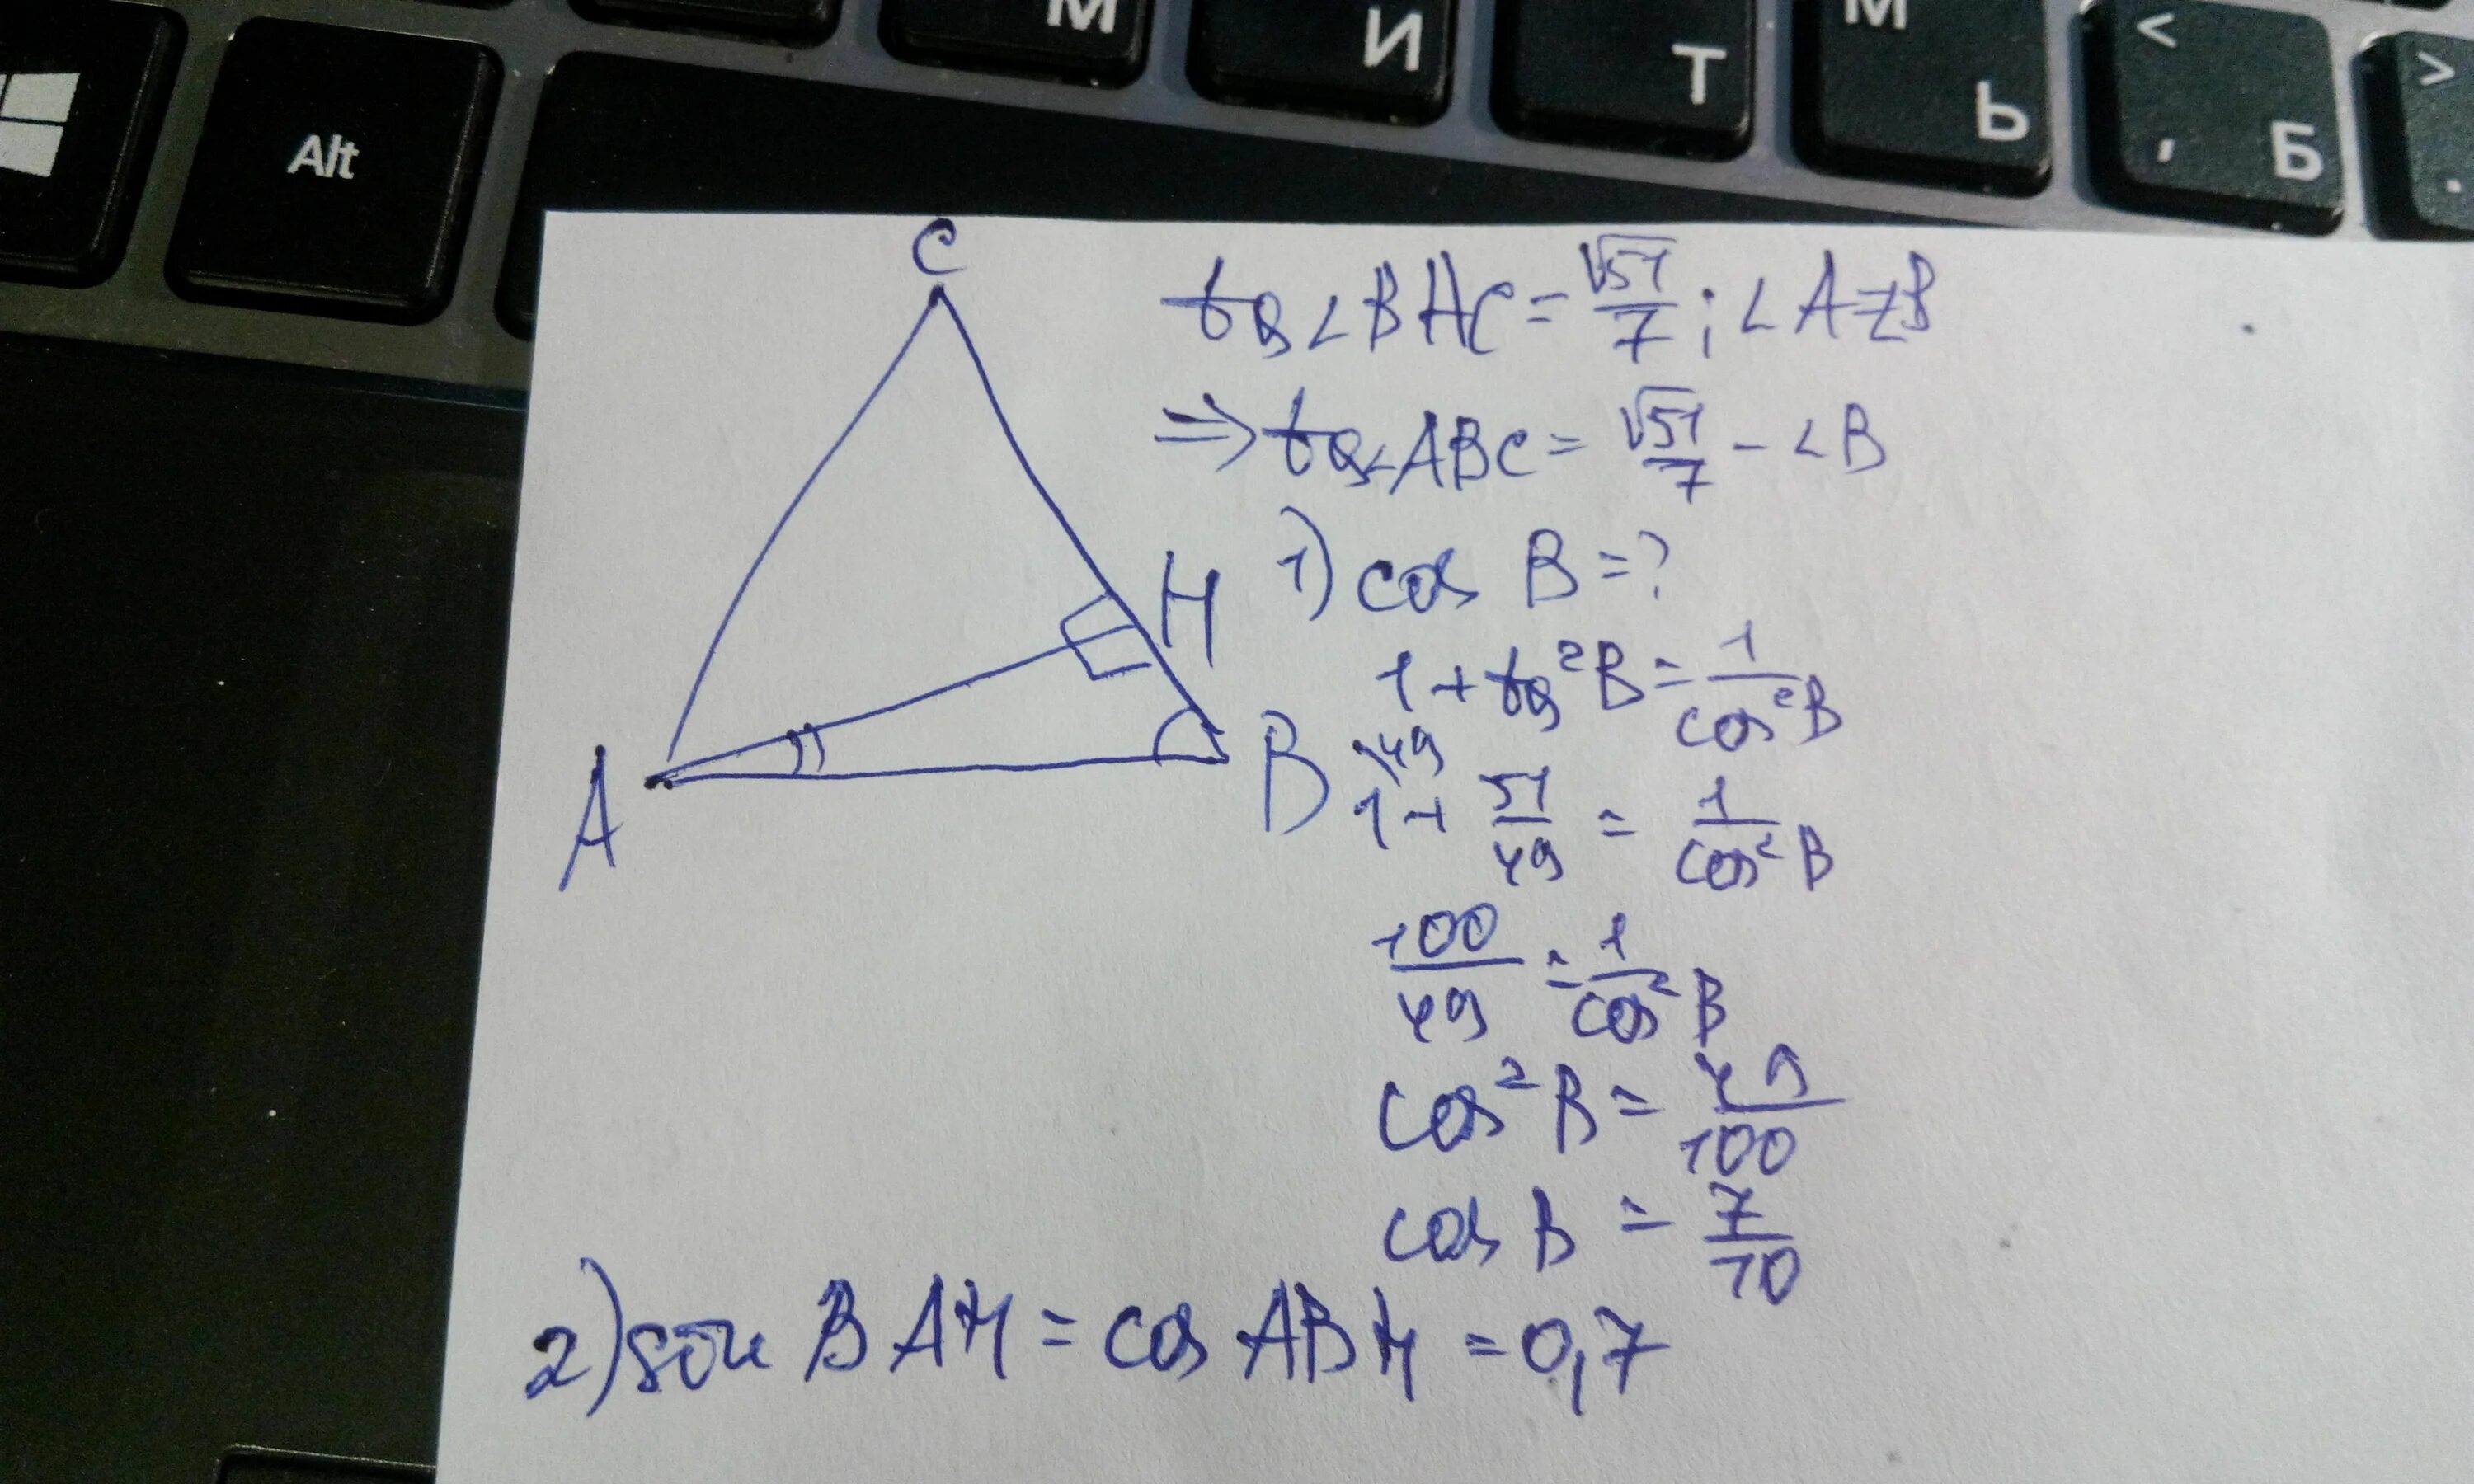 М
И
Т
М
Ь
<
, Б
>
.
Alt
C
H
A
B
tg∠BAC = √51/7 ; ∠A=∠B
⇒ tg∠ABC = √51/7 - ∠B
1) cos B = ?
1 + tg²B = 1/cos²B
\49
1 + 51/49 = 1/cos²B
100/49 = 1/cos²B
cos²B = 49/100
cos B = 7/10
2) sin BAH = cos ABH = 0,7